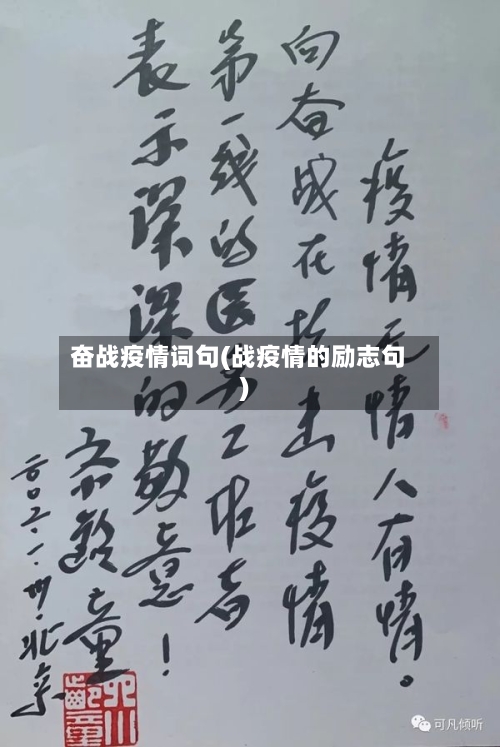 疫情无情人有情。
向奋战在抗击疫情
第一线的医务工作者
表示深深的敬意！
六小龄童
二〇二〇.一.廿八.北京
六小龄童
奋战疫情词句(战疫情的励志句
)
可凡倾听